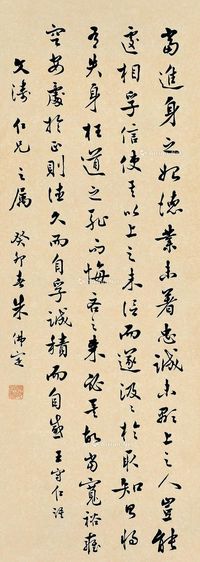 當進身之始德業未著忠誠未顯上之人豈能
遽相孚信使其以上之未信而遂汲汲於求知則將
有失身枉道之恥而悔吝之來必矣故當寬裕雍
容安處於正則德久而自孚誠積而自感 王守仁語
文濤仁兄之屬 癸卯春 朱佛定